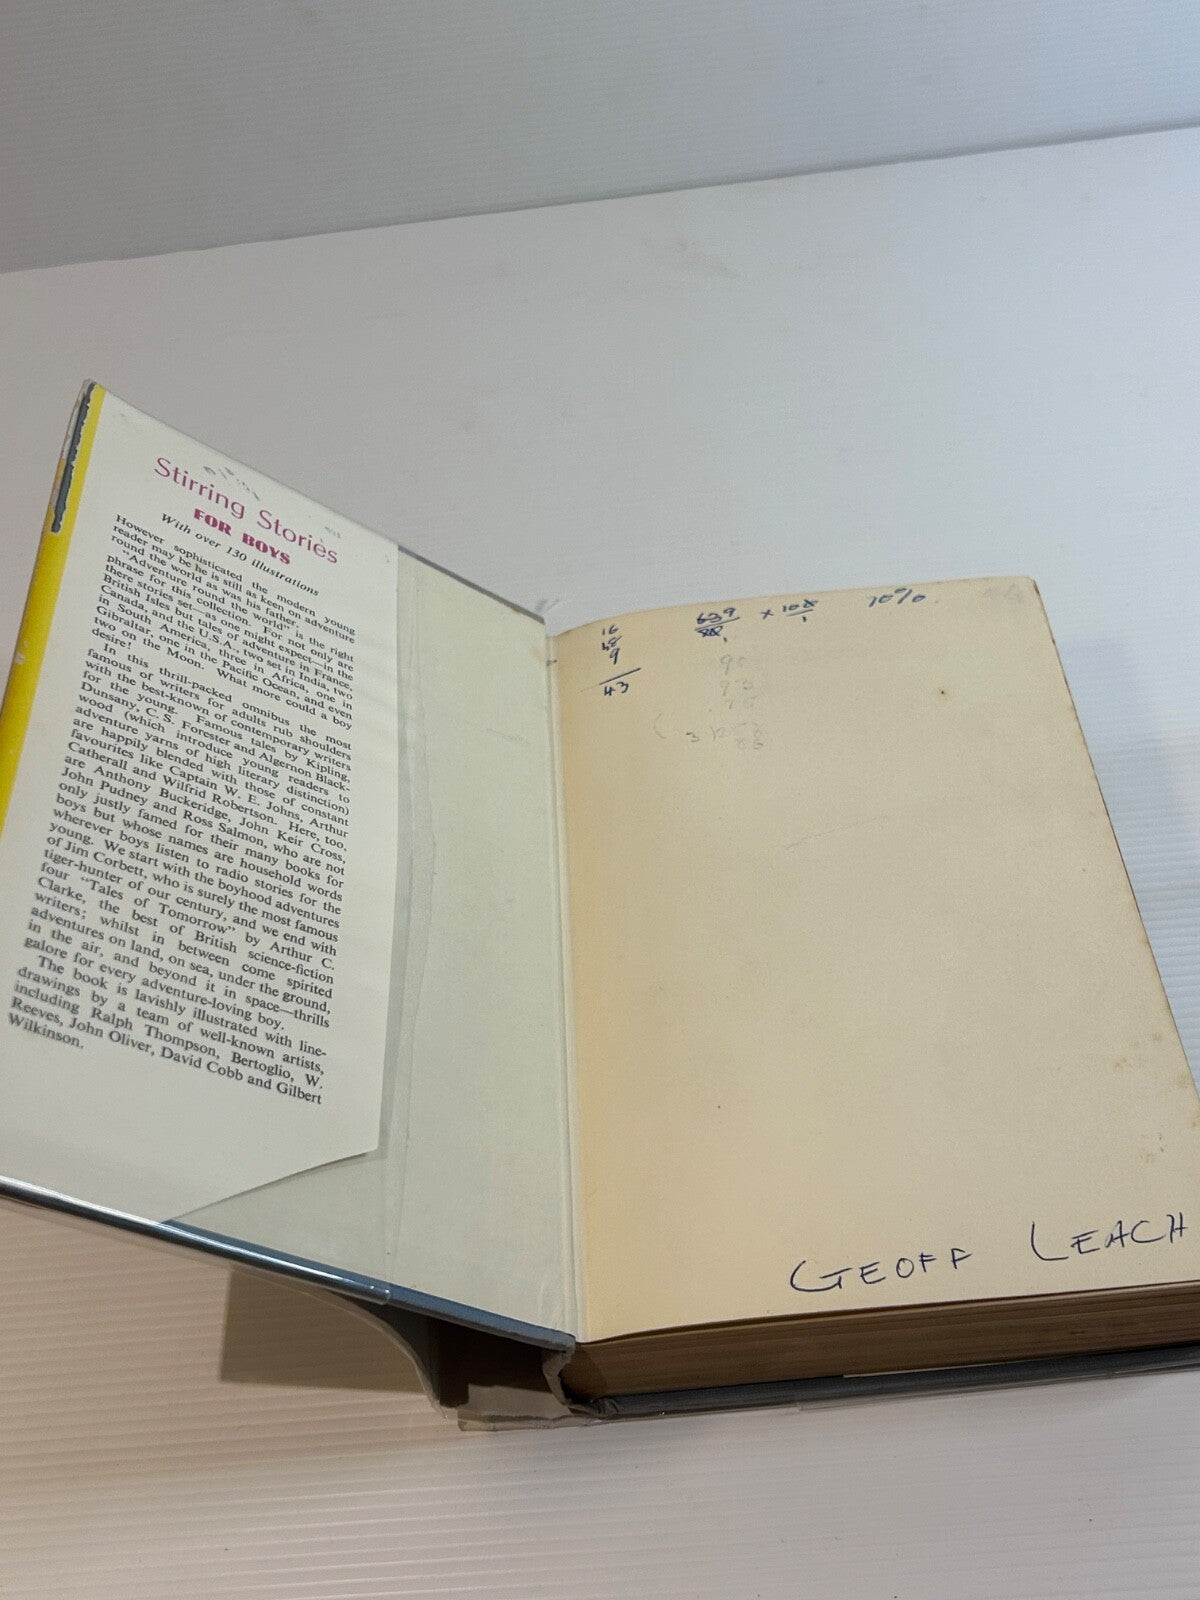 Stirring Stories
FOR BOYS
With over 130 illustrations
However sophisticated the modern young
reader may be he is still as keen on adventure
round the world as was his father.
"Adventure round the world" is the right
phrase for this collection. For not only are
there stories set—as one might expect—in the
British Isles but tales of adventure in France,
Canada, and the U.S.A., two set in India, two
in South America, three in Africa, one in
Gibraltar, one in the Pacific Ocean, and even
two on the Moon. What more could a boy
desire!
In this thrill-packed omnibus the most
famous of writers for adults rub shoulders
with the best-known of contemporary writers
for the young. Famous tales by Kipling,
Dunsany, C. S. Forester and Algernon Black-
wood (which introduce young readers to
adventure yarns of high literary distinction)
are happily blended with those of constant
favourites like Captain W. E. Johns, Arthur
Catherall and Wilfrid Robertson. Here, too,
are Anthony Buckeridge, John Keir Cross,
John Pudney and Ross Salmon, who are not
only justly famed for their many books for
boys but whose names are household words
wherever boys listen to radio stories for the
young. We start with the boyhood adventures
of Jim Corbett, who is surely the most famous
tiger-hunter of our century, and we end with
four "Tales of Tomorrow" by Arthur C.
Clarke, the best of British science-fiction
writers; whilst in between come spirited
adventures on land, on sea, under the ground,
in the air, and beyond it in space—thrills
galore for every adventure-loving boy.
The book is lavishly illustrated with line-
drawings by a team of well-known artists,
including Ralph Thompson, Bertoglio, W.
Reeves, John Oliver, David Cobb and Gilbert
Wilkinson.
16
9
43
639
10%
GEOFF LEACH